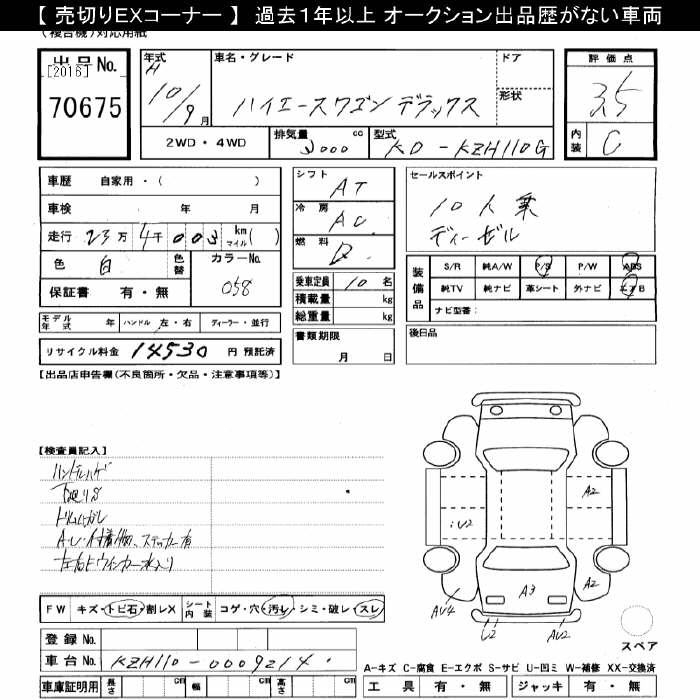 【 売切りEXコーナー 】 過去１年以上 オークション出品歴がない車両
(複合機)対応用紙
出品No.
[2016]
70675
年式
H
10/9月
車名・グレード
ハイエースワゴン デラックス
ドア
形状
2WD・4WD
排気量 3000 cc
型式 KD - KZH110G
評価点
3.5
内装 C
車歴 自家用・( )
車検 年 月
走行 23万 4千 003 km マイル( )
色 白 色替
カラーNo. 058
保証書 有・無
シフト AT
冷房 AC
燃料 D
乗車定員 10 名
積載量 kg
総重量 kg
書類期限
月 日
セールスポイント
10人乗
ディーゼル
装備品
S/R 純A/W P/S P/W ABS
純TV 純ナビ 革シート 外ナビ エアB
ナビ型番:
後日品
モデル年式 年 ハンドル 左・右 ディーラー・並行
リサイクル料金 14530 円 預託済
【出品店申告欄(不良箇所・欠品・注意事項等)】
【検査員記入】
ハンドルハゲ
下廻りS
A・U・付着物、ステッカー有
左右Fウインカー水入り
A2
U2
A2
A3
AU4
U2
AU2
スペア
FW キズ・トビ石・割レX
シート内装 コゲ・穴・汚レ・シミ・破レ・スレ
登録No.
車台No. KZH110-0009214
車庫証明用 長さ cm 幅 cm 高さ cm
A-キズ C-腐食 E-エクボ S-サビ U-凹ミ W-補修 XX-交換済
工具 有・無 ジャッキ 有・無